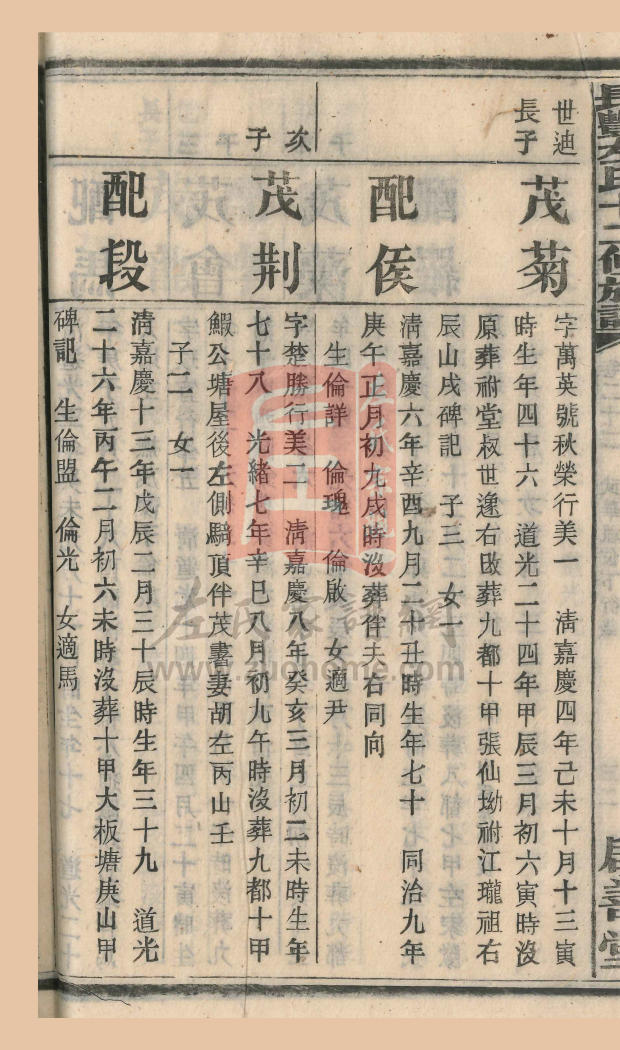 世迪
長子
茂菊
字萬英號秋榮行美一　清嘉慶四年己未十月十三寅
時生年四十六　道光二十四年甲辰三月初六寅時沒
原葬祔堂叔世逸右改葬九都十甲張仙坳祔江瓏祖右
辰山戌碑記　子三　女一
配侯
清嘉慶六年辛酉九月二十丑時生年七十　同治九年
庚午正月初九戌時沒葬伴夫右同向
生倫詳　倫瑰　倫啟　女適尹
次
子
茂荆
字楚勝行美二　清嘉慶八年癸亥三月初二未時生年
七十八　光緒七年辛巳八月初九午時沒葬九都十甲
鰕公塘屋後左側騎頂伴茂書妻胡左丙山壬
子二　女一
配段
清嘉慶十三年戊辰二月三十辰時生年三十九　道光
二十六年丙午二月初六未時沒葬十甲大板塘庚山甲
碑記　生倫盟　倫光　女適馬
左氏家譜網
www.zuohome.com